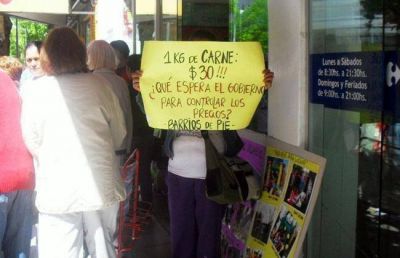 1 KG DE CARNE:
$30!!!
¿QUÉ ESPERA EL GOBIERNO
PARA CONTROLAR LOS
PRECIOS?
BARRIOS DE PIE-
Lunes a Sábados
de 8:30hs. a 21:30hs.
Domingos y Feriados
de 9:00hs. a 21:30hs.